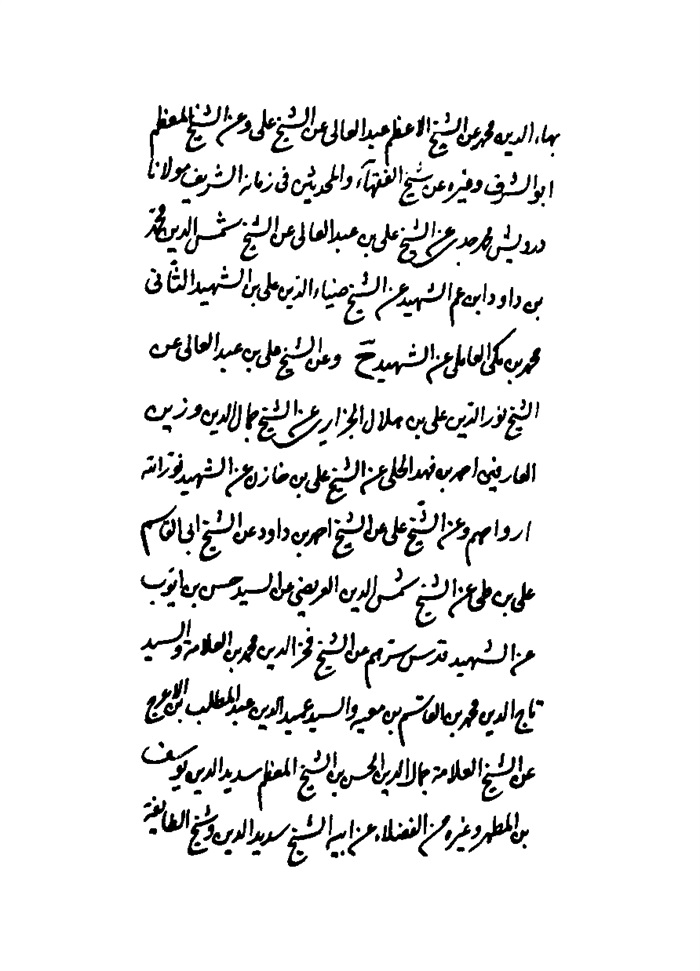 بهاء الدين محمد عن الشيخ الاعظم عبد العالى عن الشيخ على وعن الشيخ المعظم
ابو الشرف وغيره عن شيخ الفقهآء والمحدثين فى زمانه الشريف مولانا
درويش محمد جدى عن الشيخ على بن عبد العالى عن الشيخ شمس الدين محمد
بن داود ابن عم الشهيد عن الشيخ ضياء الدين على بن الشهيد الثانى
محمد بن مكى العاملى عن الشهيد ح وعن الشيخ على بن عبد العالى عن
الشيخ نور الدين على بن هلال الجزايرى عن الشيخ جمال الدين وزين
العارفين احمد بن فهد الحلى عن الشيخ على بن خازن عن الشهيد نور الله
ارواحهم وعن الشيخ على عن الشيخ احمد بن داود عن الشيخ ابى القاسم
على بن طى عن الشيخ شمس الدين العريضى عن السيد حسن بن ايوب
عن الشهيد قدس سرهم عن الشيخ فخر الدين محمد بن العلامة والسيد
تاج الدين محمد بن القاسم بن معيه والسيد عميد الدين عبد المطلب بن الاعرج
عن الشيخ العلامة جمال الدين الحسن بن الشيخ المعظم سديد الدين يوسف
بن المطهر وغيره من الفضلاء عن ابيه الشيخ سديد الدين وشيخ الطايفة